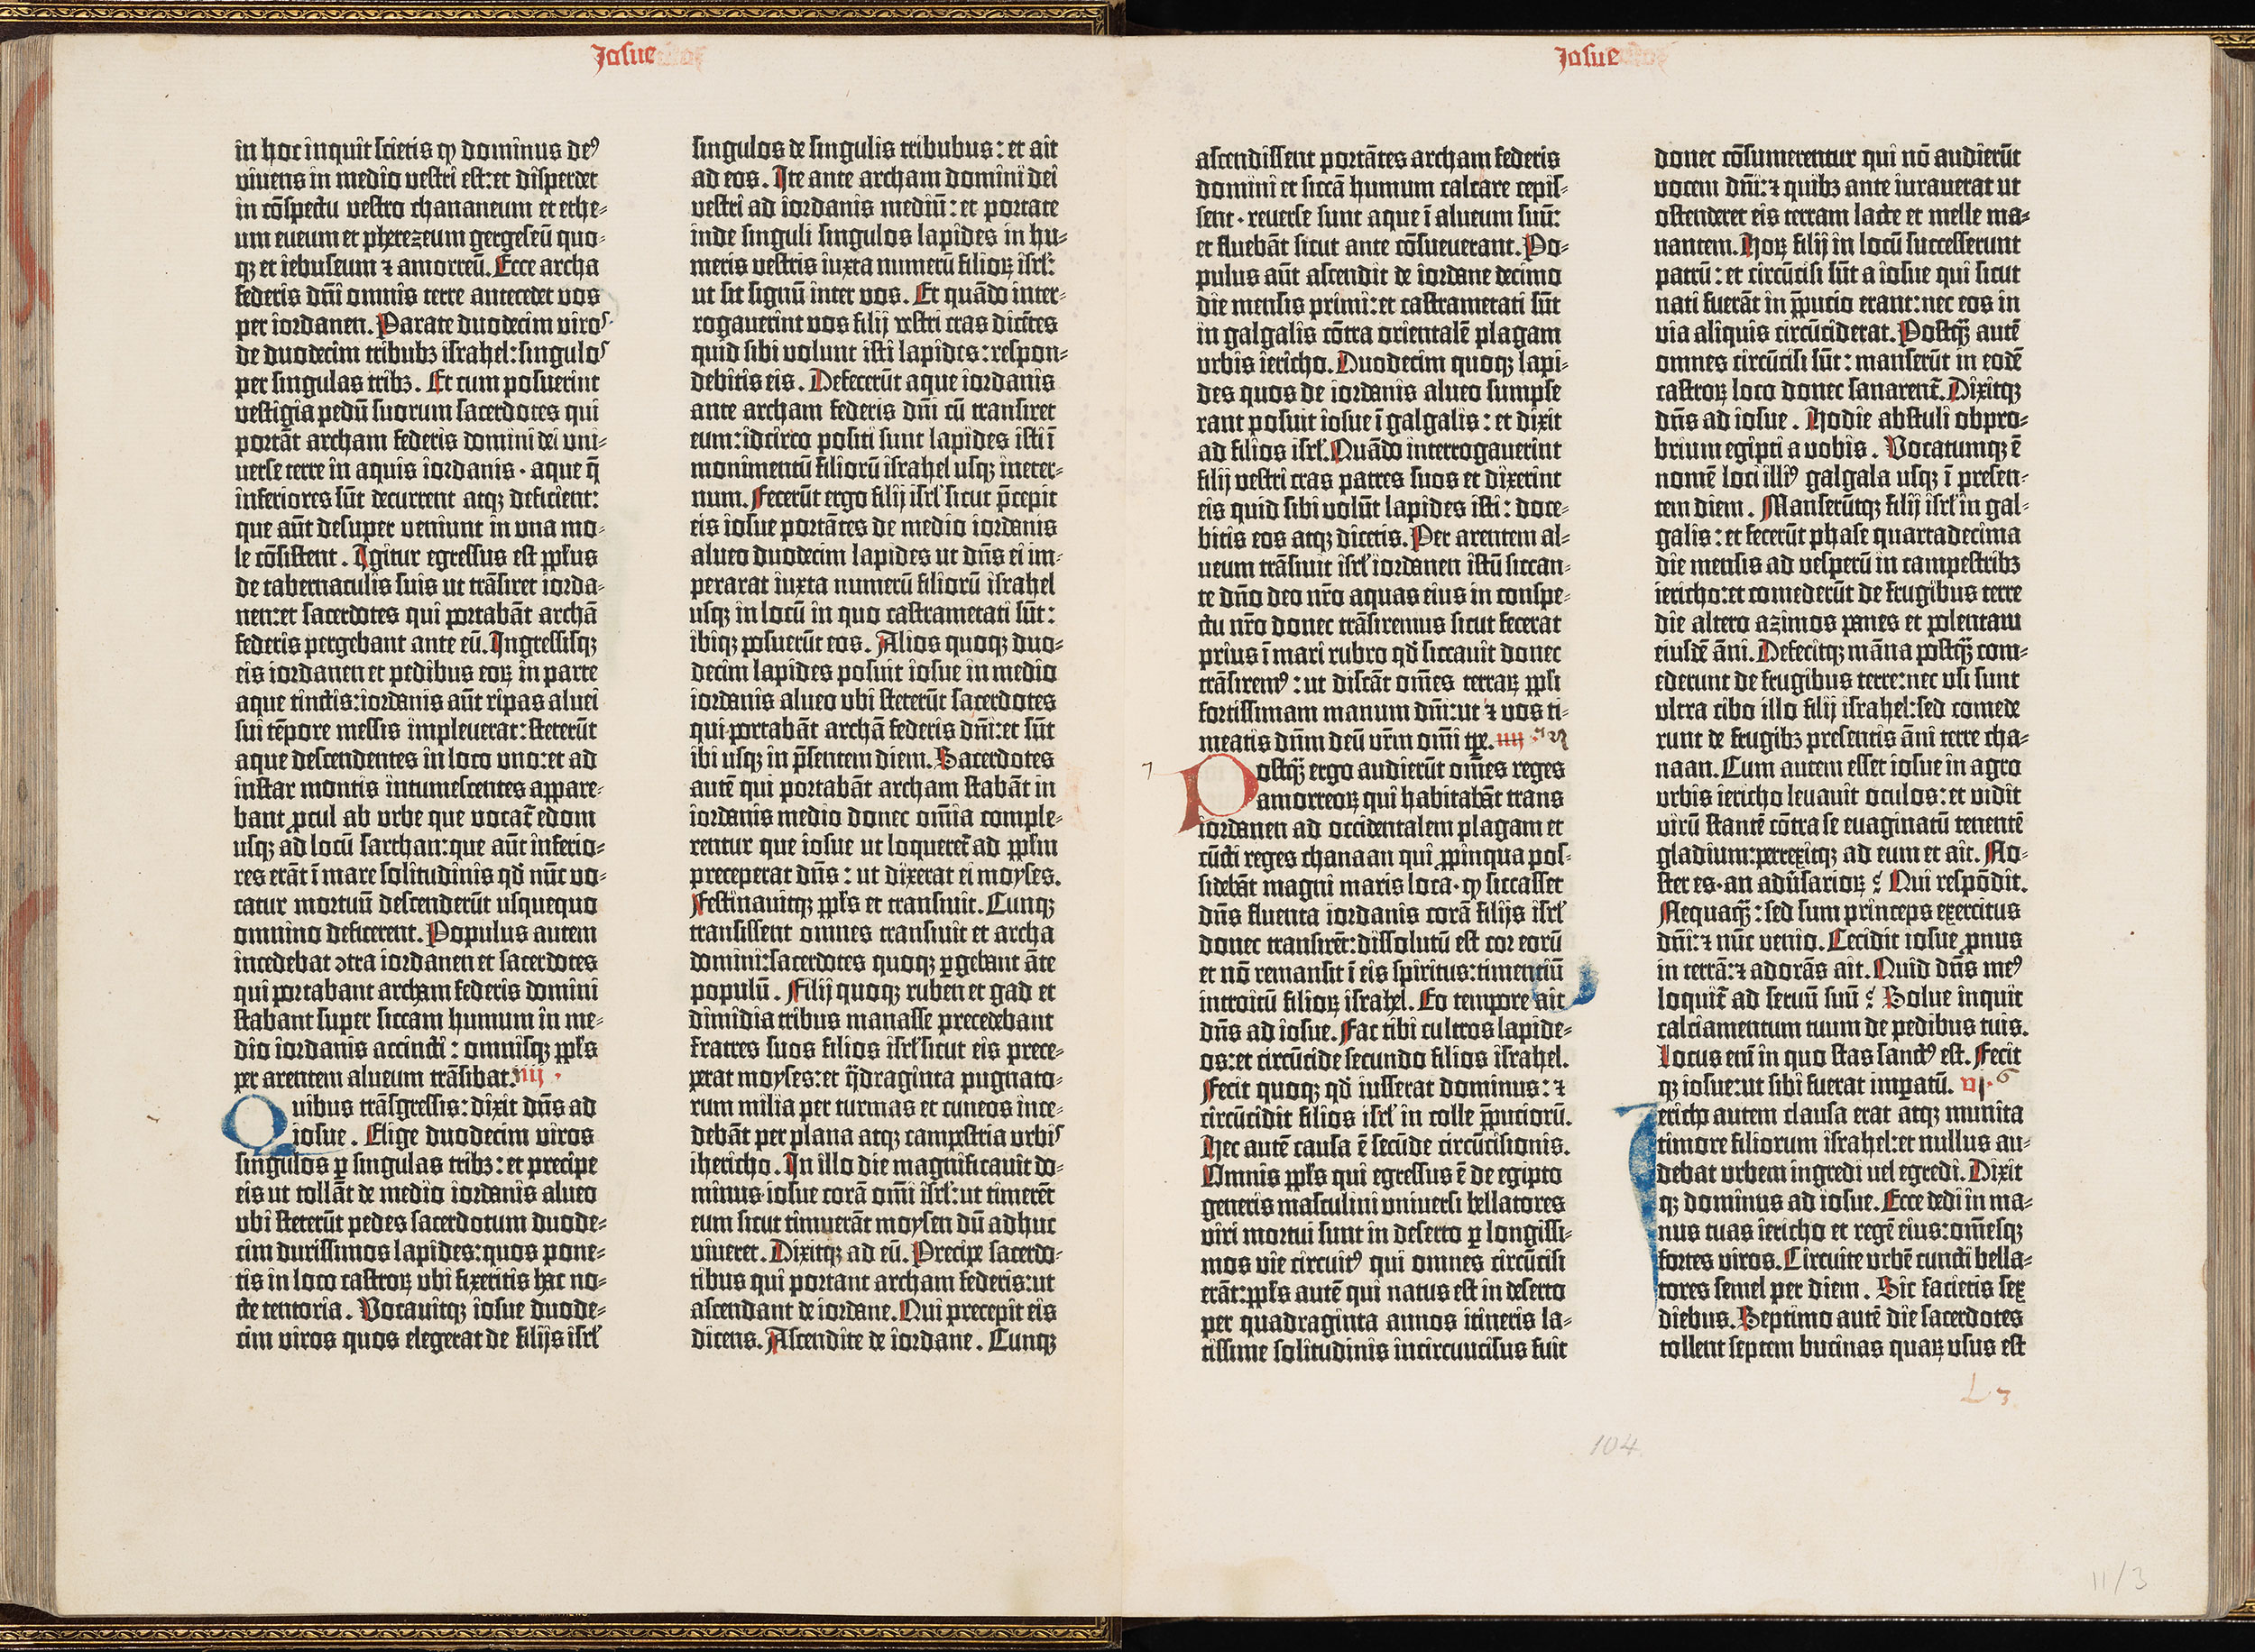 Josue
in hoc inquit scietis ꝙ dominus deꝰ
viuens in medio vestri est:et disperdet
in cōspectu vestro chananeum et ethe-
um eueum et pherezeum gergeseū quo-
qꝫ et iebuseum ⁊ amorreū. Ecce archa
federis dn̄i omnis terre antecedet vos
per iordanen. Parate duodecim viros
de duodecim tribubꝫ israhel:singulos
per singulas tribꝫ. Et cum posuerint
vestigia pedū suorum sacerdotes qui
portāt archam federis domini dei uni-
uerse terre in aquis iordanis· aque q̄
inferiores sūt decurrent atqꝫ deficient:
que aūt desuper veniunt in vna mo-
le cōsistent. Igitur egressus est pp̄lus
de tabernaculis suis ut trāsiret iorda-
nen:et sacerdotes qui portabāt archā
federis pergebant ante eū. Ingressisqꝫ
eis iordanen et pedibus eoꝝ in parte
aque tinctis:iordanis aūt ripas aluei
sui tēpore messis impleuerat:steterūt
aque descendentes in loco vno:et ad
instar montis intumescentes appare-
bant ꝓcul ab vrbe que vocat̄ edom
usqꝫ ad locū sarthan:que aūt inferio-
res erāt ī mare solitudinis qd̄ nūc vo-
catur mortuū descenderūt usquequo
omnino deficerent. Populus autem
incedebat ↄtra iordanen et sacerdotes
qui portabant archam federis domini
stabant super siccam humum in me-
dio iordanis accincti: omnisqꝫ pp̄ls
per arentem alueum trāsibat. iiij
Quibus trāsgressis:dixit dn̄s ad
iosue. Elige duodecim viros
singulos ꝑ singulas tribꝫ:et precipe
eis ut tollāt de medio iordanis alueo
vbi steterūt pedes sacerdotum duode-
cim durissimos lapides:quos pone-
tis in loco castroꝝ vbi fixeritis hac no-
cte tentoria. Vocauitqꝫ iosue duode-
cim viros quos elegerat de filijs isrl̄
singulos de singulis tribubus: et ait
ad eos. Ite ante archam domini dei
vestri ad iordanis mediū: et portate
inde singuli singulos lapides in hu-
meris vestris iuxta numerū filioꝝ isrl̄:
ut sit signū inter vos. Et quādo inter-
rogauerint vos filij vestri cras dicētes
quid sibi volunt isti lapides:respon-
debitis eis. Defecerūt aque iordanis
ante archam federis dn̄i cū transiret
eum:idcirco positi sunt lapides isti ī
monimentū filiorū israhel usqꝫ ineter-
num. Fecerūt ergo filij isrl̄ sicut p̄cepit
eis iosue portātes de medio iordanis
alueo duodecim lapides ut dn̄s ei im-
perarat iuxta numerū filiorū israhel
usqꝫ in locū in quo castrametati sūt:
ibiqꝫ posuerūt eos. Alios quoqꝫ duo-
decim lapides posuit iosue in medio
iordanis alueo vbi steterūt sacerdotes
qui portabāt archā federis dn̄i:et sūt
ibi usqꝫ in p̄sentem diem. Sacerdotes
autē qui portabāt archam stabāt in
iordanis medio donec om̄ia comple-
rentur que iosue ut loqueret̄ ad pp̄lm
preceperat dn̄s: ut dixerat ei moyses.
Festinauitqꝫ pp̄ls et transiuit. Cunqꝫ
transissent omnes transiuit et archa
domini:sacerdotes quoqꝫ ꝑgebant āte
populū. Filij quoqꝫ ruben et gad et
dimidia tribus manasse precedebant
fratres suos filios isrl̄ sicut eis prece-
perat moyses:et q̄draginta pugnato-
rum milia per turmas et cuneos ince-
debāt per plana atqꝫ campestria vrbis
ihericho. In illo die magnificauit do-
minus iosue corā om̄i isrl̄:ut timerēt
eum sicut timuerāt moysen dū adhuc
viueret. Dixitqꝫ ad eū. Precipe sacerdo-
tibus qui portant archam federis:ut
ascendant de iordane. Qui precepit eis
dicens. Ascendite de iordane. Cunqꝫ
Josue
ascendissent portātes archam federis
domini et siccā humum calcare cepis-
sent· reuerse sunt aque ī alueum suū:
et fluebāt sicut ante cōsueuerant. Po-
pulus aūt ascendit de iordane decimo
die mensis primi:et castrametati sūt
in galgalis cōtra orientalē plagam
vrbis iericho. Duodecim quoqꝫ lapi-
des quos de iordanis alueo sumpse
rant posuit iosue ī galgalis: et dixit
ad filios isrl̄. Quādo interrogauerint
filij vestri cras patres suos et dixerint
eis quid sibi volūt lapides isti: doce-
bitis eos atqꝫ dicetis. Per arentem al-
ueum trāsiuit isrl̄ iordanen istū siccan-
te dn̄o deo nr̄o aquas eius in conspe-
ctu nr̄o donec trāsiremus sicut fecerat
prius ī mari rubro qd̄ siccauit donec
trāsiremꝰ: ut discāt om̄es terraꝝ pp̄li
fortissimam manum dn̄i:ut ⁊ vos ti-
meatis dn̄m deū vr̄m om̄i tp̄r. v
Postq̄ꝫ ergo audierūt om̄es reges
amorreoꝝ qui habitabāt trans
iordanen ad occidentalem plagam et
cūcti reges chanaan qui ꝓpinqua pos-
sidebāt magni maris loca· ꝙ siccasset
dn̄s fluenta iordanis corā filijs isrl̄
donec transirēt:dissolutū est cor eorū
et nō remansit ī eis spiritus:timentiū
introitū filioꝝ israhel. Eo tempore ait
dn̄s ad iosue. Fac tibi cultros lapide-
os:et circūcide secundo filios israhel.
Fecit quoqꝫ qd̄ iusserat dominus: ⁊
circūcidit filios isrl̄ in colle p̄puciorū.
Hec autē causa ē secūde circūcisionis.
Omnis pp̄ls qui egressus ē de egipto
generis masculini vniuersi bellatores
viri mortui sunt in deserto ꝑ longissi-
mos vie circuitꝰ qui omnes circūcisi
erāt:pp̄ls autē qui natus est in deserto
per quadraginta annos itineris la-
tissime solitudinis incircuncisus fuit
donec cōsumerentur qui nō audierūt
vocem dn̄i:⁊ quibꝫ ante iurauerat ut
ostenderet eis terram lacte et melle ma-
nantem. Hoꝝ filij in locū successerunt
patrū: et circūcisi sūt a iosue qui sicut
nati fuerāt in p̄pucio erant:nec eos in
via aliquis circūciderat. Postq̄ꝫ autē
omnes circūcisi sūt: manserūt in eodē
castroꝝ loco donec sanarent̄. Dixitqꝫ
dn̄s ad iosue. Hodie abstuli obpro-
brium egipti a vobis. Vocatumqꝫ ē
nomē loci illiꝰ galgala usqꝫ ī presen-
tem diem. Manserūtqꝫ filij isrl̄ in gal-
galis: et fecerūt phase quartadecima
die mensis ad vesperū in campestribꝫ
iericho:et comederūt de frugibus terre
die altero azimos panes et polentam
eiusdē āni. Defecitqꝫ māna postq̄ꝫ com-
ederunt de frugibus terre:nec usi sunt
vltra cibo illo filij israhel:sed comede
runt de frugibꝫ presentis āni terre cha-
naan. Cum autem esset iosue in agro
vrbis iericho leuauit oculos:et vidit
virū stantē cōtra se euaginatū tenentē
gladium:perrexitqꝫ ad eum et ait. No-
ster es·an adūsarioꝝ? Qui respōdit.
Nequaq̄ꝫ: sed sum princeps exercitus
dn̄i:⁊ nūc venio. Cecidit iosue ꝓnus
in terrā:⁊ adorās ait. Quid dn̄s meꝰ
loquit̄ ad seruū suū? Solue inquit
calciamentum tuum de pedibus tuis.
Locus em̄ in quo stas sanctꝰ est. Fecit
qꝫ iosue:ut sibi fuerat imꝑatū. vj· 6
Jericho autem clausa erat atqꝫ munita
timore filiorum israhel:et nullus au-
debat vrbem ingredi uel egredi. Dixit
qꝫ dominus ad iosue. Ecce dedi in ma-
nus tuas iericho et regē eius:om̄esqꝫ
fortes viros. Circuite vrbē cuncti bella-
tores semel per diem. Sic facietis sex
diebus. Septimo autē die sacerdotes
tollent septem bucinas quaꝝ usus est
L 3
104
11/3